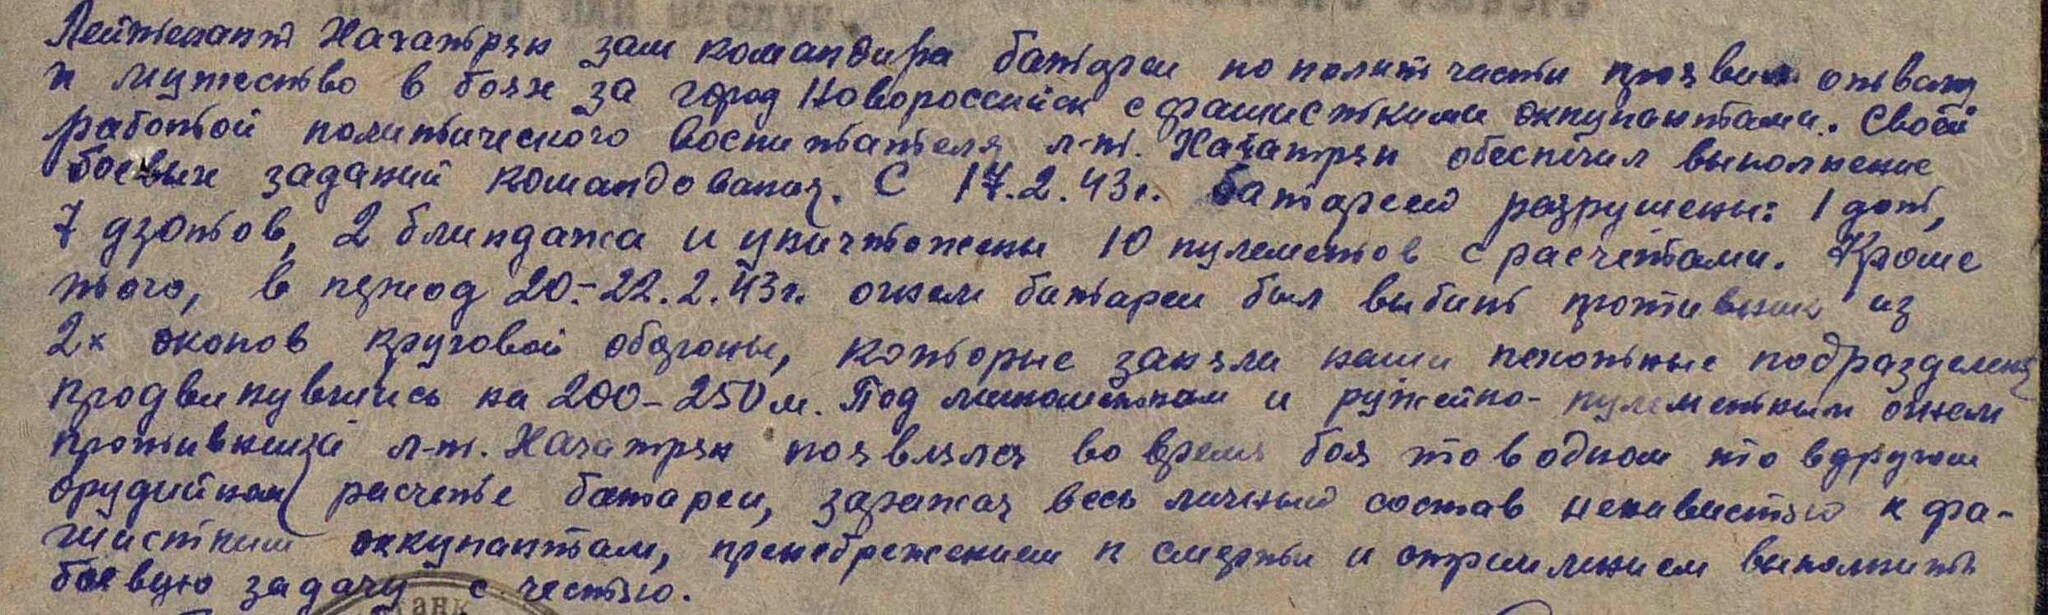 Лейтенант Хачатрян зам командира батареи по политчасти проявил отвагу
и мужество в боях за город Новороссийск с фашисткими оккупантами. Своей
работой политического воспитателя л-т. Хачатрян обеспечил выполнение
боевых заданий командования. С 17.2.43г. батареей разрушены: 1 дот,
7 дзотов, 2 блиндажа и уничтожены 10 пулеметов с расчетами. Кроме
того, в период 20.-22.2.43г. огнем батареи был выбит противник из
2х окопов круговой обороны, которые заняли наши пехотные подразделения
продвинувшись на 200-250м. Под минометным и ружейно-пулеметным огнем
противника л-т. Хачатрян появлялся во время боя то в одном то в другом
орудийном расчете батареи, заражая весь личный состав ненавистью к фа-
шистким оккупантам, пренебрежением к смерти и стремлением выполнить
боевую задачу с честью.
танк